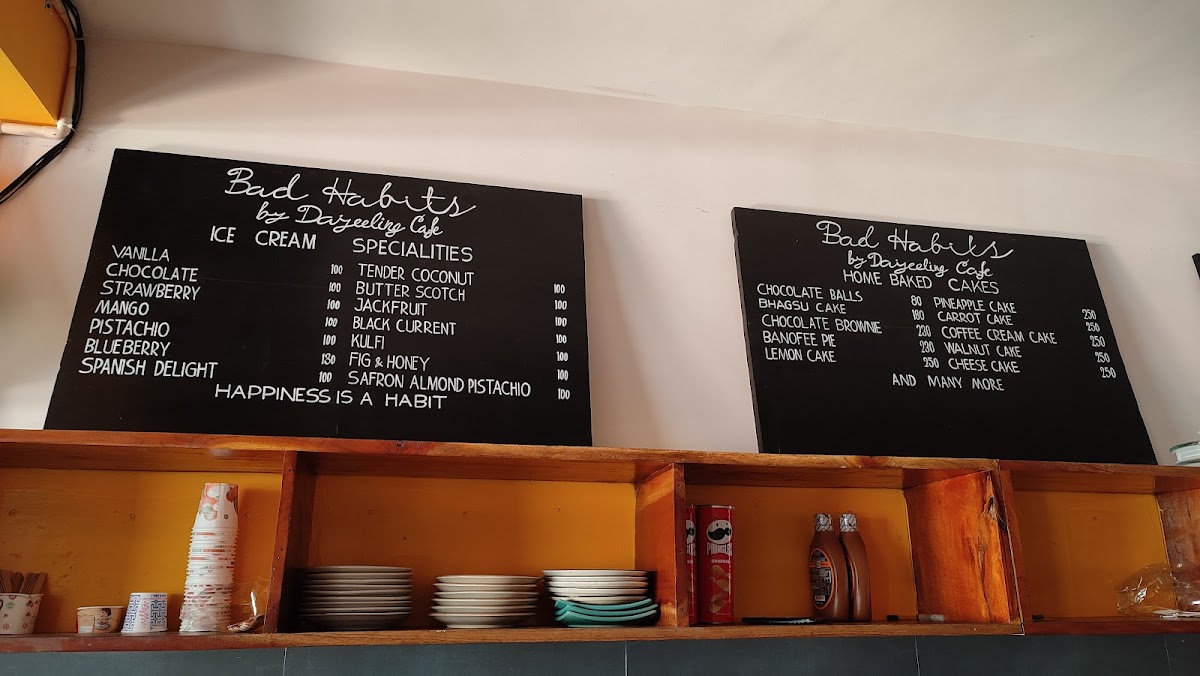 Bad Habits
by Darjeeling Cafe
ICE CREAM SPECIALITIES
VANILLA 100 TENDER COCONUT 100
CHOCOLATE 100 BUTTER SCOTCH 100
STRAWBERRY 100 JACKFRUIT 100
MANGO 100 BLACK CURRENT 100
PISTACHIO 100 KULFI 100
BLUEBERRY 130 FIG & HONEY 100
SPANISH DELIGHT 100 SAFRON ALMOND PISTACHIO 100
HAPPINESS IS A HABIT
Bad Habits
by Darjeeling Cafe
HOME BAKED CAKES
CHOCOLATE BALLS 80 PINEAPPLE CAKE 250
BHAGSU CAKE 180 CARROT CAKE 250
CHOCOLATE BROWNIE 230 COFFEE CREAM CAKE 250
BANOFEE PIE 230 WALNUT CAKE 250
LEMON CAKE 250 CHEESE CAKE 250
AND MANY MORE
PRINGLES